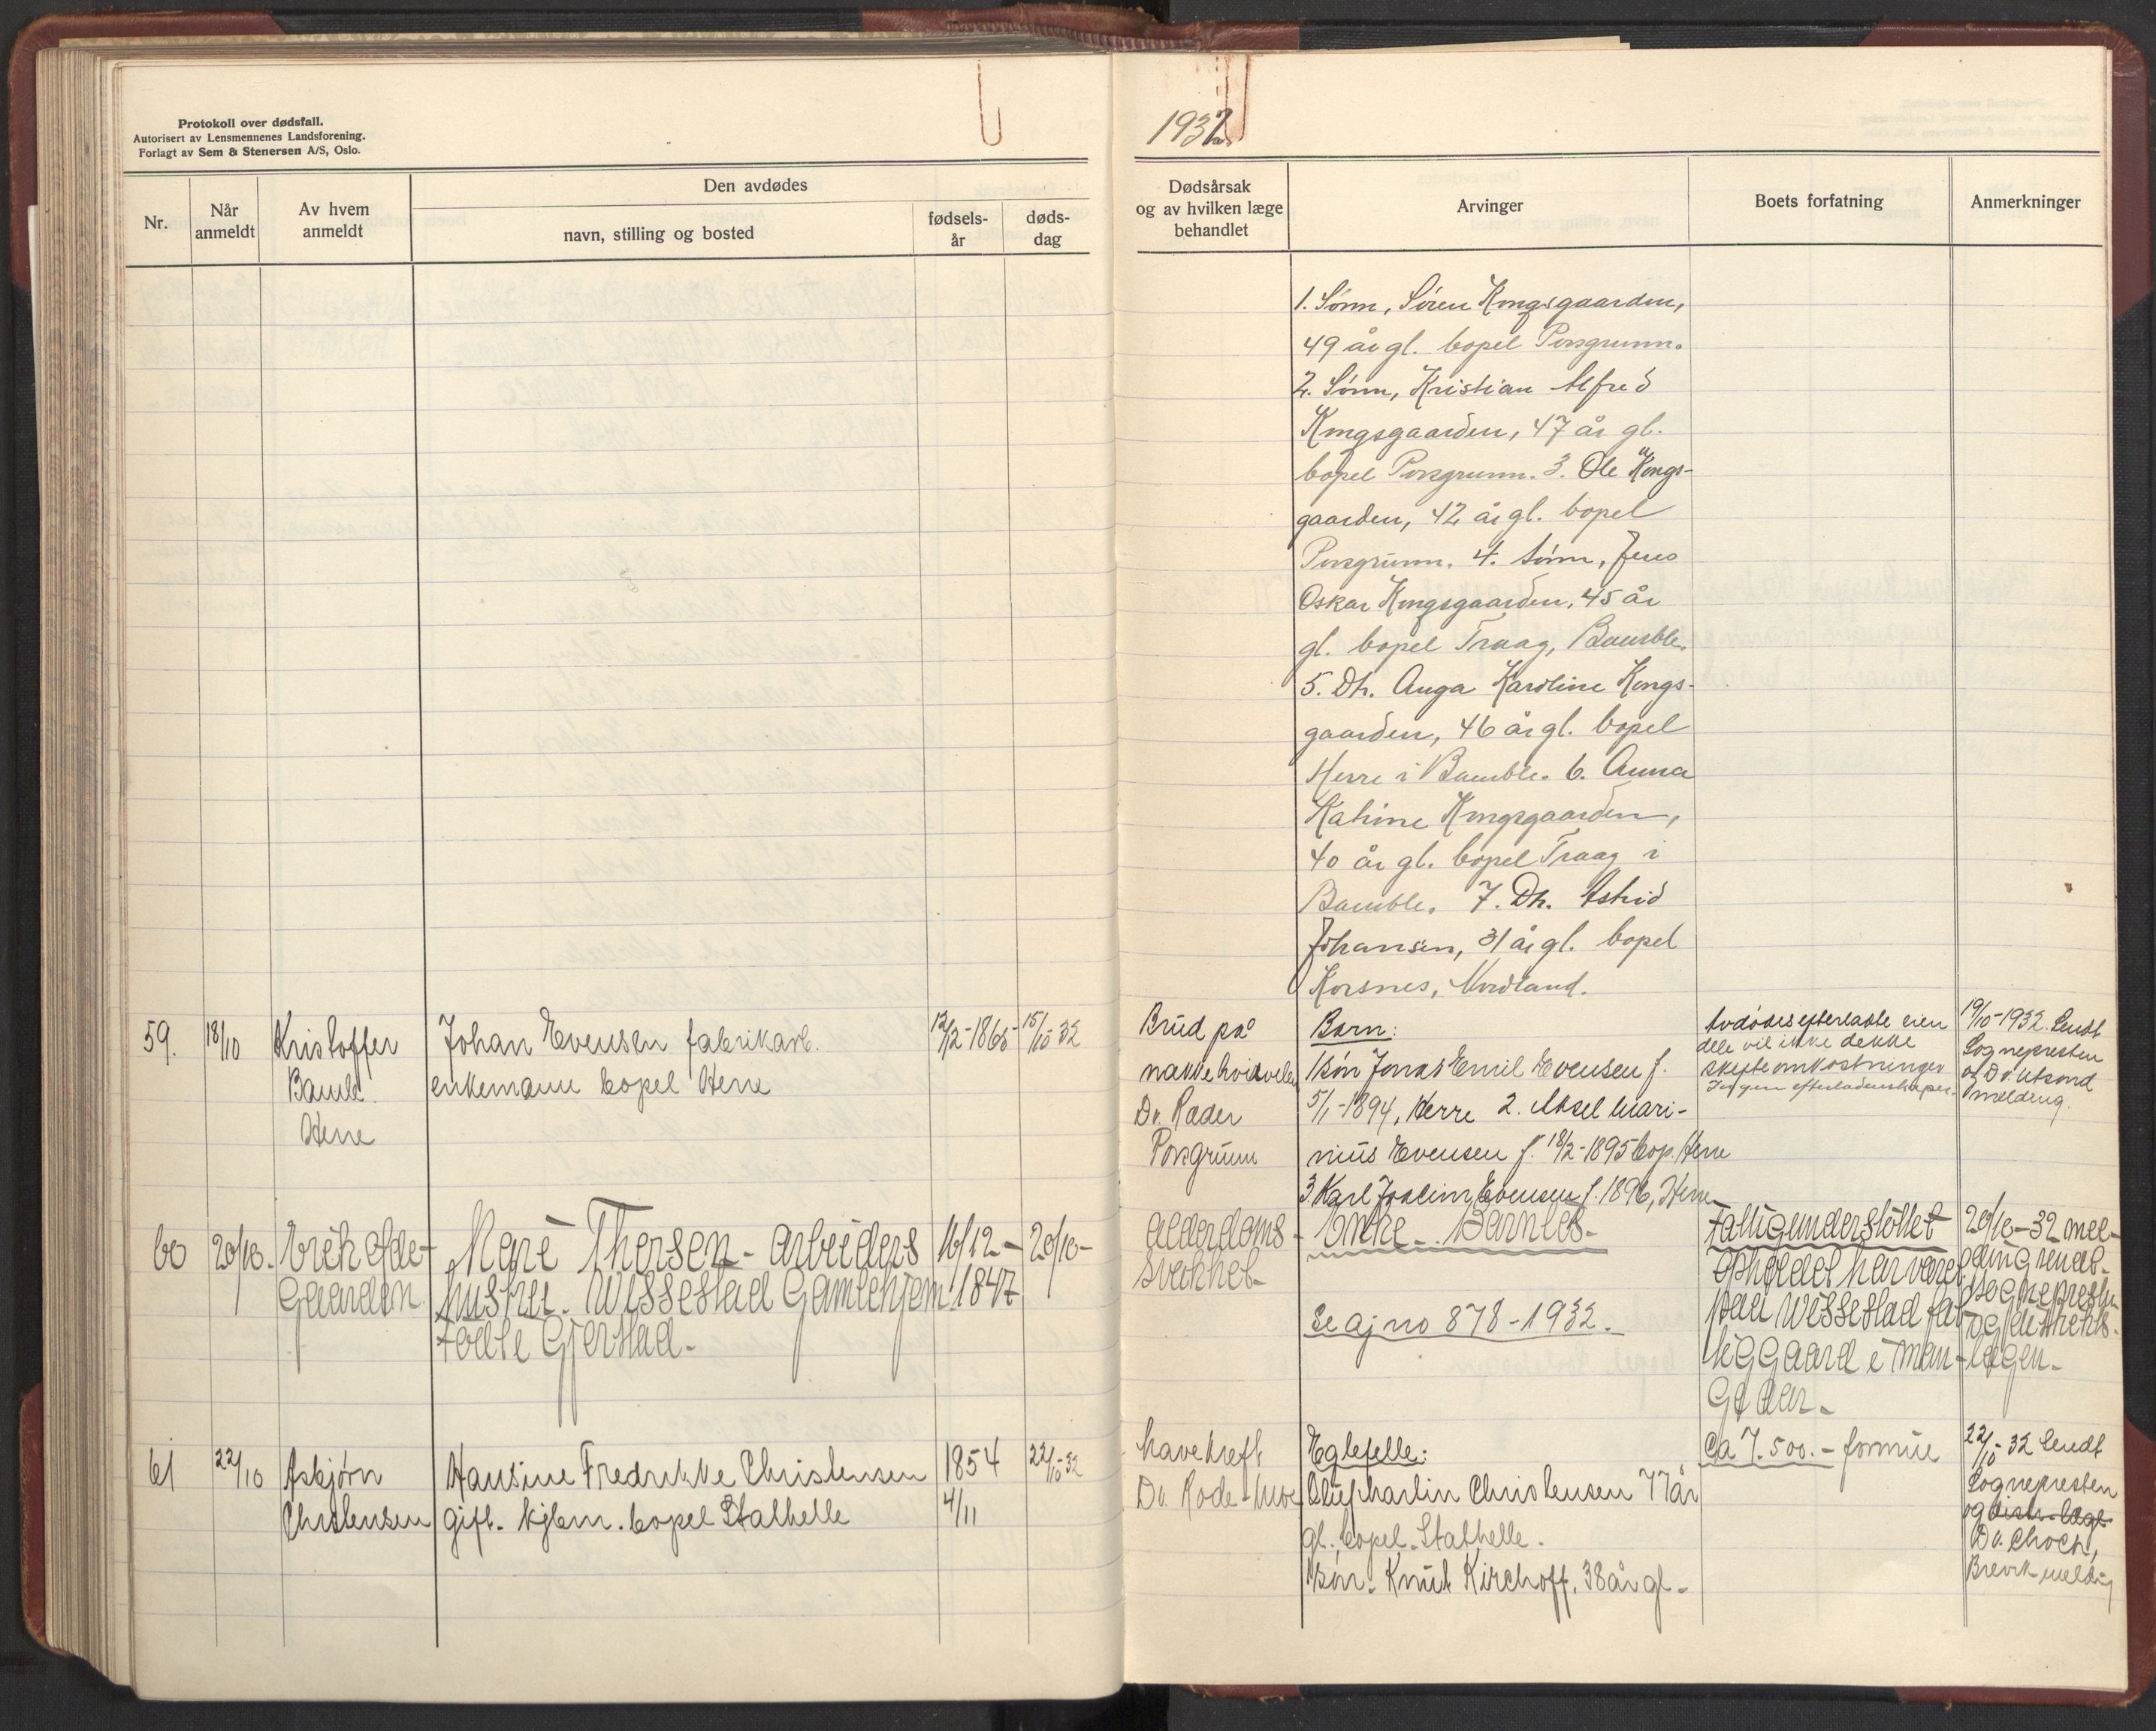 Protokoll over dødsfall.
Autorisert av Lensmennenes Landsforening.
Forlagt av Sem & Stenersen A/S, Oslo.
Nr.
Når
anmeldt
Av hvem
anmeldt
Den avdødes
navn, stilling og bosted
fødsels-
år
døds-
dag
59.
18/10
Kristoffer
Bamle
Herre
Johan Evensen fabrikarb.
enkemann bopel Herre
15/10-32
60
20/10.
Gaarden
Mare Thorsen - Arbeiders
hustru. Wissestad Gamlehjem
fodte Gjerstad-
16/12-
1847
20/10-
61
22/10
Asbjørn
Christensen
Hansine Fredrikke Christensen
gift. kjbm. bopel Stathelle
1854
4/11
22/10-32
1932
Dødsårsak
og av hvilken læge
behandlet
Arvinger
Boets forfatning
Anmerkninger
1. Sønn, Søren Kongsgaarden,
49 år gl. bopel Porsgrunn.
2. Sønn, Kristian Alfred
Kongsgaarden, 47 år gl.
bopel Porsgrunn. 3. Ole Kongs-
gaarden, 42 år gl. bopel
Porsgrunn. 4. Sønn, Jens
Oskar Kongsgaarden, 45 år
gl. bopel Traag, Bamble.
5. Dh. Anga Karoline Kongs-
gaarden, 46 år gl. bopel
Herre i Bamble. 6. Anna
Katrine Kongsgaarden,
40 år gl. bopel Traag i
Bamble. 7. Dh. Astrid
Johansen, 31 år gl. bopel
Korsnes, Nordland.
Brud på
nakkehvirvelen
Dr. Ræder
Porsgrunn
Barn:
1 søn Jonas Emil Evensen f.
5/1-1894, Herre 2. Aksel Mari-
nius Evensen f. 18/2-1895 bop. Herre
3 Karl Joakim Evensen f. 1896, Herre
Avdødes efterladte eien
dele vil ikke dekke
skifteomkostninger
Ingen efterladenskaper.
19/10-1932. Sendt
Sognepresten
melding.
Alderdoms-
svakhet-
Enke - Barnløs-
Se aj no 878-1932.
Fattigunderstøttet
Opholdet har været
paa Wissestad fat
tiggaard i man-
ge aar-
20/10-32 mel-
ding sendt-
sognepresten
og distrikts-
lægen-
Mavekreft
Dr.
Egtefelle:
Christensen 77 år
gl. bopel. Stathelle.
1 søn. Knut Kirchoff, 38 år gl-
Ca 7.500.- formue
22/10-32 Sendt
Sognepresten
og distr. læge
Dr.
Brevik melding